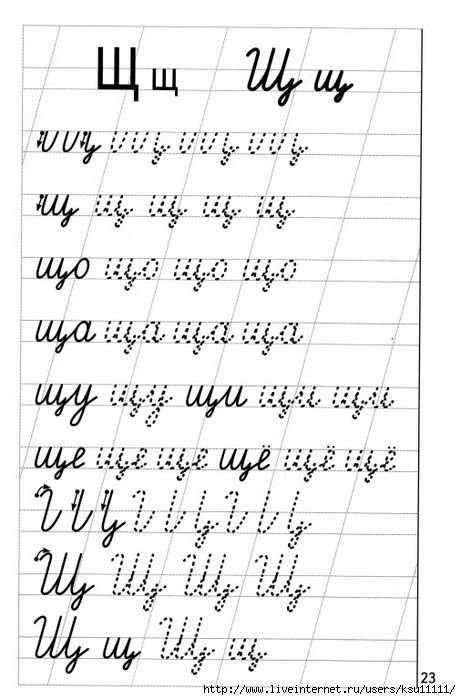 Щ щ Щ щ
щ щ щ щ щ
що що що що
ща ща ща ща
щу щу щи щи щи
ще ще ще щё щё щё
Щ Щ Щ Щ
Щ щ Щ щ
23
http://www.liveinternet.ru/users/ksu11111/